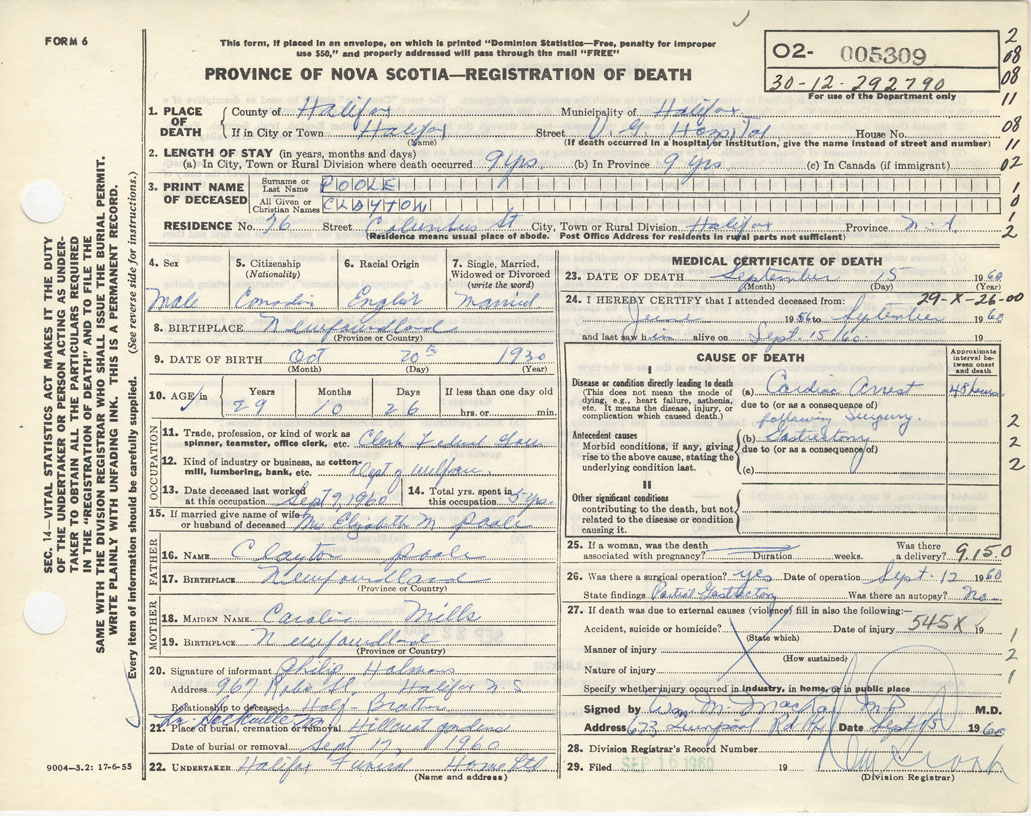 FORM 6
This form, if placed in an envelope, on which is printed "Dominion Statistics—Free, penalty for improper
use $50," and properly addressed will pass through the mail "FREE"
PROVINCE OF NOVA SCOTIA—REGISTRATION OF DEATH
02- 005309
30-12-292790
For use of the Department only
2
08
08
11
08
11
02
1
0
1
2
SEC. 14—VITAL STATISTICS ACT MAKES IT THE DUTY
OF THE UNDERTAKER OR PERSON ACTING AS UNDER-
TAKER TO OBTAIN ALL THE PARTICULARS REQUIRED
IN THE "REGISTRATION OF DEATH" AND TO FILE THE
SAME WITH THE DIVISION REGISTRAR WHO SHALL ISSUE THE BURIAL PERMIT.
WRITE PLAINLY WITH UNFADING INK. THIS IS A PERMANENT RECORD.
Every item of information should be carefully supplied. (See reverse side for instructions.)
1. PLACE OF DEATH County of Halifax Municipality of Halifax
If in City or Town Halifax Street V. G. Hospital House No.
(Name) (If death occurred in a hospital or institution, give the name instead of street and number)
2. LENGTH OF STAY (in years, months and days)
(a) In City, Town or Rural Division where death occurred 9 yrs. (b) In Province 9 yrs. (c) In Canada (if immigrant)
3. PRINT NAME OF DECEASED Surname or Last Name POOLE
All Given or Christian Names CLAYTON
RESIDENCE No. 36 Street Columbus St City, Town or Rural Division Halifax Province N.S.
(Residence means usual place of abode. Post Office Address for residents in rural parts not sufficient)
4. Sex 5. Citizenship (Nationality) 6. Racial Origin 7. Single, Married, Widowed or Divorced (write the word)
Male Canadin English Married
8. BIRTHPLACE Newfoundland
(Province or Country)
9. DATE OF BIRTH Oct 20th 1930
(Month) (Day) (Year)
10. AGE in Years Months Days If less than one day
29 10 26 hrs. or min.
OCCUPATION
11. Trade, profession, or kind of work as
spinner, teamster, office clerk, etc. Clerk Federal Gov
12. Kind of industry or business, as cotton-
mill, lumbering, bank, etc. Dept of Welfare
13. Date deceased last worked at this occupation Sept 9, 1960 14. Total yrs. spent in this occupation 5 yrs.
15. If married give name of wife
or husband of deceased Mrs Elizabeth M Poole
FATHER
16. NAME Clayton Poole
17. BIRTHPLACE Newfoundland
(Province or Country)
MOTHER
18. MAIDEN NAME Caroline Mills
19. BIRTHPLACE Newfoundland
(Province or Country)
20. Signature of informant Philip Holmes
Address 967 Robie St. Halifax N.S
Relationship to deceased Half-Brother
Sackville
21. Place of burial, cremation or removal Hillcrest gardens
Date of burial or removal Sept 17, 1960
22. UNDERTAKER Halifax Funeral Home Ltd
(Name and address)
9004—3.2: 17-6-55
MEDICAL CERTIFICATE OF DEATH
23. DATE OF DEATH September 15 1960
(Month) (Day) (Year)
24. I HEREBY CERTIFY that I attended deceased from: 29-X-26-00
June 1956 to September 1960
and last saw him alive on Sept. 15/60. 19
CAUSE OF DEATH
Approximate interval between onset and death
I
Disease or condition directly leading to death
(This does not mean the mode of
dying, e.g., heart failure, asthenia,
etc. It means the disease, injury, or
complication which caused death.)
(a) Cardiac Arrest 48 hours
due to (or as a consequence of)
following surgery.
Antecedent causes
Morbid conditions, if any, giving
rise to the above cause, stating the
underlying condition last.
(b) Gastrectomy
due to (or as a consequence of)
(c)
2
2
2
II
Other significant conditions
contributing to the death, but not
related to the disease or condition
causing it.
25. If a woman, was the death
associated with pregnancy? Duration weeks. Was there a delivery? 9.15.0
26. Was there a surgical operation? yes Date of operation Sept. 12 1960
State findings Partial Gastrectomy Was there an autopsy? No
27. If death was due to external causes (violence) fill in also the following:
Accident, suicide or homicide? (State which) Date of injury 545X 19
Manner of injury (How sustained)
Nature of injury
Specify whether injury occurred in industry, in home, or in public place
1
2
1
Signed by Wm. M. MacRae MD M.D.
Address 673 Liverpool Rd Hfx Date Sept 15 1960
28. Division Registrar's Record Number
29. Filed SEP 16 1960 19
(Division Registrar)